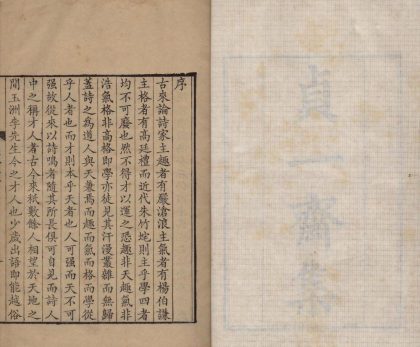 序
古來論詩家主趣者有嚴滄浪主氣者有楊伯謙
主格者有高廷禮而近代朱竹垞則主乎學四者
均不可廢也然不得才以運之恐趣非天趣氣非
浩氣格非高格即學亦徒見其汗漫叢雜而無歸
蓋詩之為道人與天兼焉而趣而氣而格而學從
乎人者也而才則本乎天者也人可强而天不可
强故從來以詩鳴者隨其所長俱可自見而詩人
中之稱才人者古今來秖數餘人相望於天地之
間玉洲李先生今之才人也少歲出語即能越俗
貞一齋集